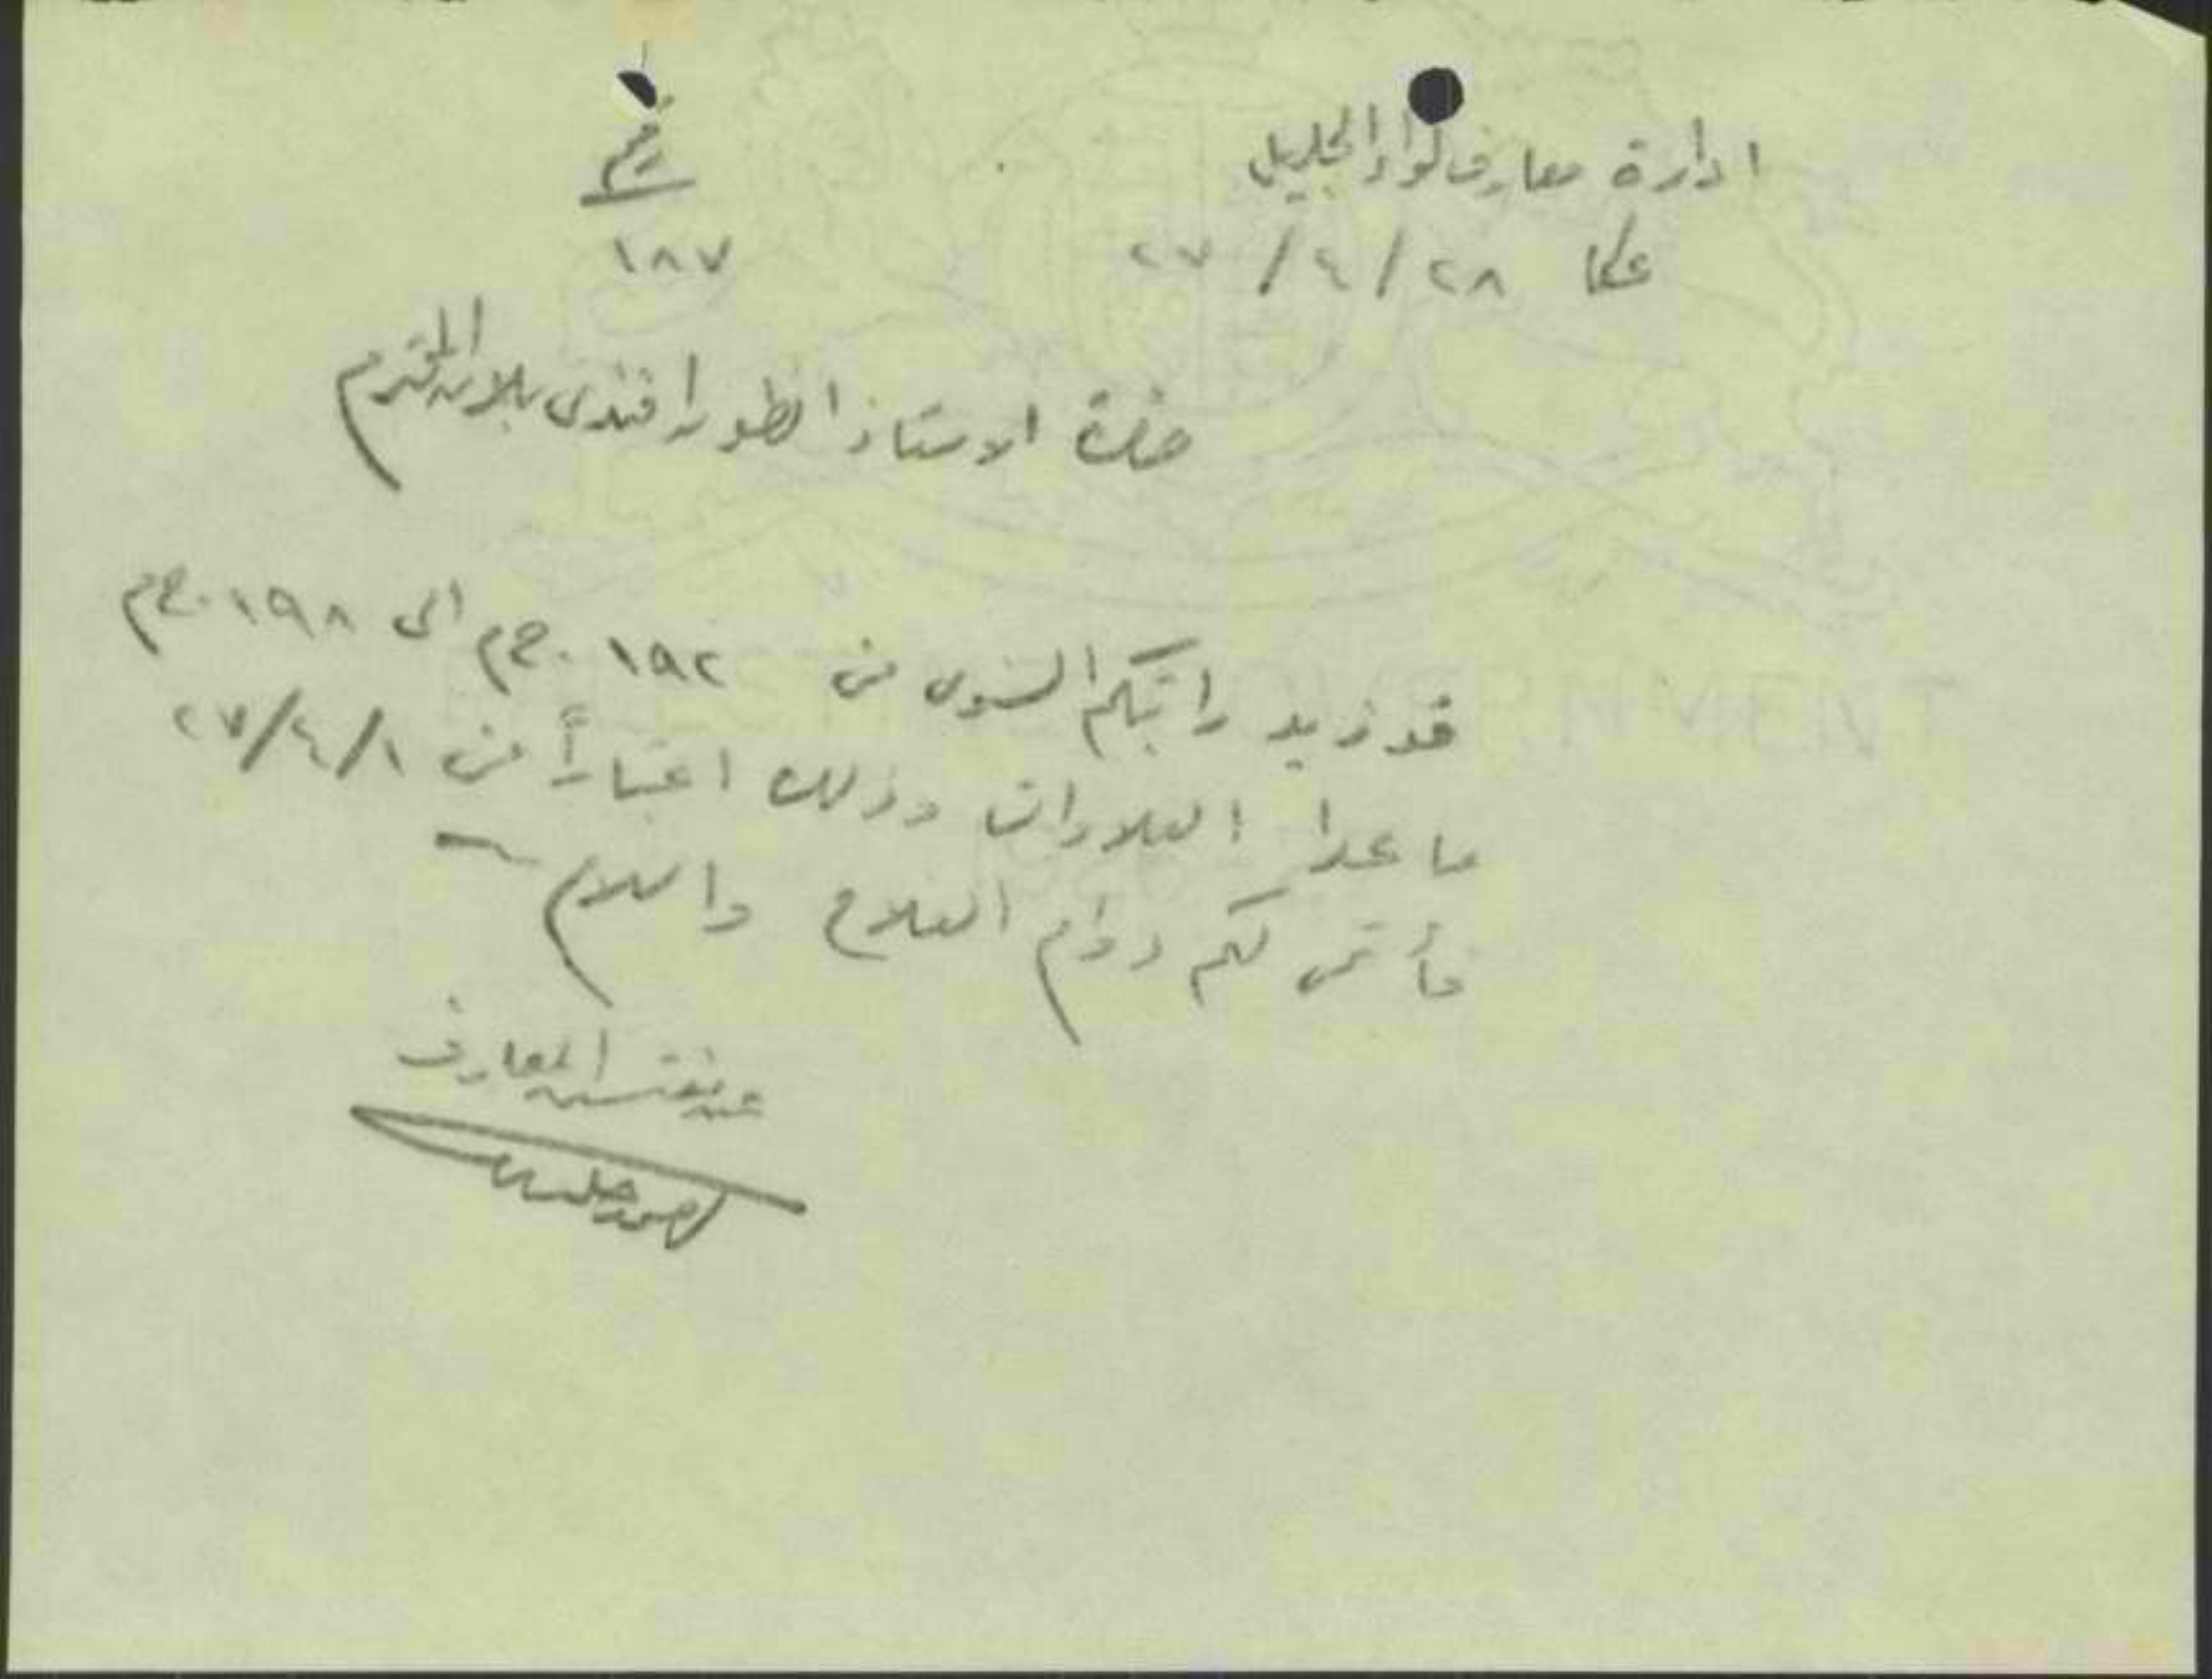 ادارة معارف لواء الجليل
رقم
عكا ٢٨/٤/٢٧
١٨٧
حضرة الاستاذ انطون افندي بلان المحترم
قد زيد راتبكم السنوي من ١٩٢ ج.م الى ١٩٨ ج.م
ما عدا العلاوات وذلك اعتباراً من ١/٤/٢٧
فأتمنى لكم دوام الفلاح والسلام
عن مفتش المعارف